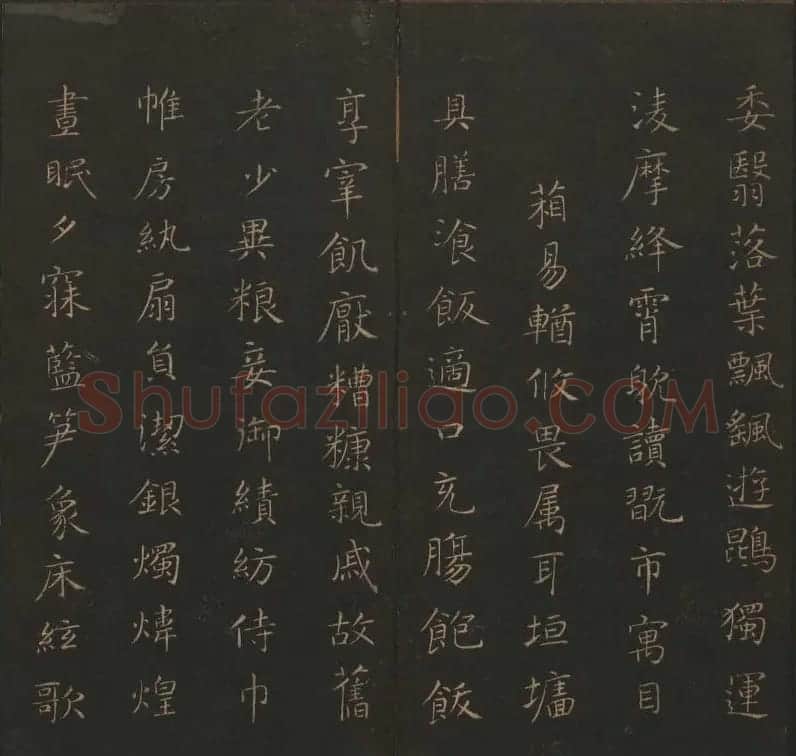 委翳落葉飄颻遊鵾獨運
淩摩絳霄耽讀翫市寓目
葙易輶攸畏属耳垣墻
具膳湌飯適口充腸飽飫
享宰飢厭糟糠親戚故舊
老少異粮妾御績紡侍巾
帷房紈扇貟潔銀燭煒煌
晝眠夕寐藍笋象床絃歌
Shufaziliao.COM